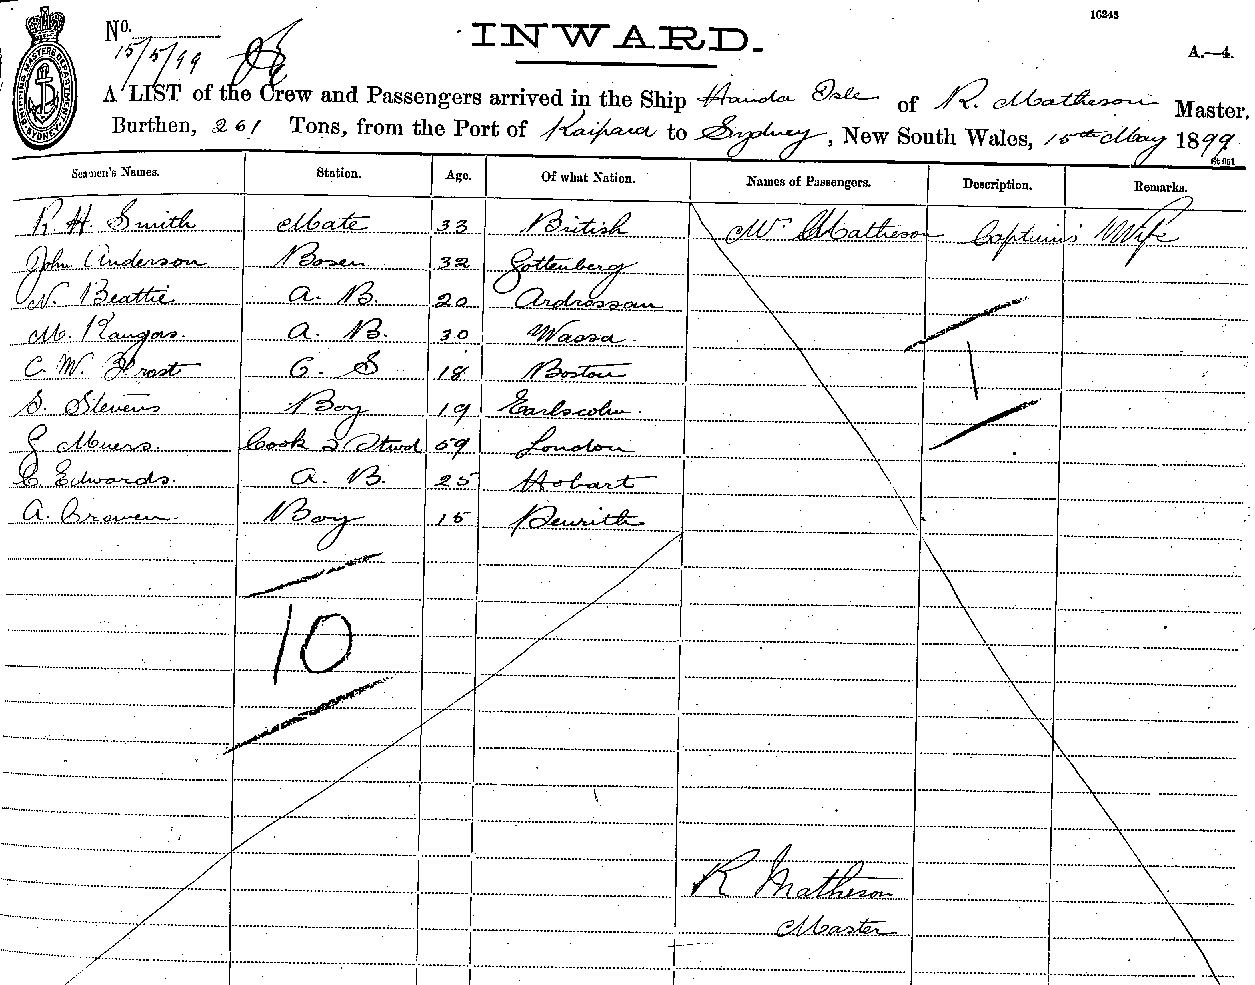 16243
No.
15/5/99
INWARD.
A.—4.
A LIST of the Crew and Passengers arrived in the Ship Handa Isle of R. Matheson Master,
Burthen, 261 Tons, from the Port of Kaipara to Sydney, New South Wales, 15th May 1899
Seamen's Names. Station. Age. Of what Nation. Names of Passengers. Description. Remarks.
R. H. Smith Mate 33 British Mrs Matheson Captain's Wife
John Anderson Bosen 32 Gottenberg
N. Beattie A. B. 20 Ardrossan
M. Kangas. A. B. 30 Wassa.
C. W. Frost O. S 18 Boston
S. Stevens Boy 19
G Muers. Cook & Stwd 59 London
C Edwards. A. B. 25 Hobart
A. Craven Boy 15 Penrith
1
10
R Matheson
Master